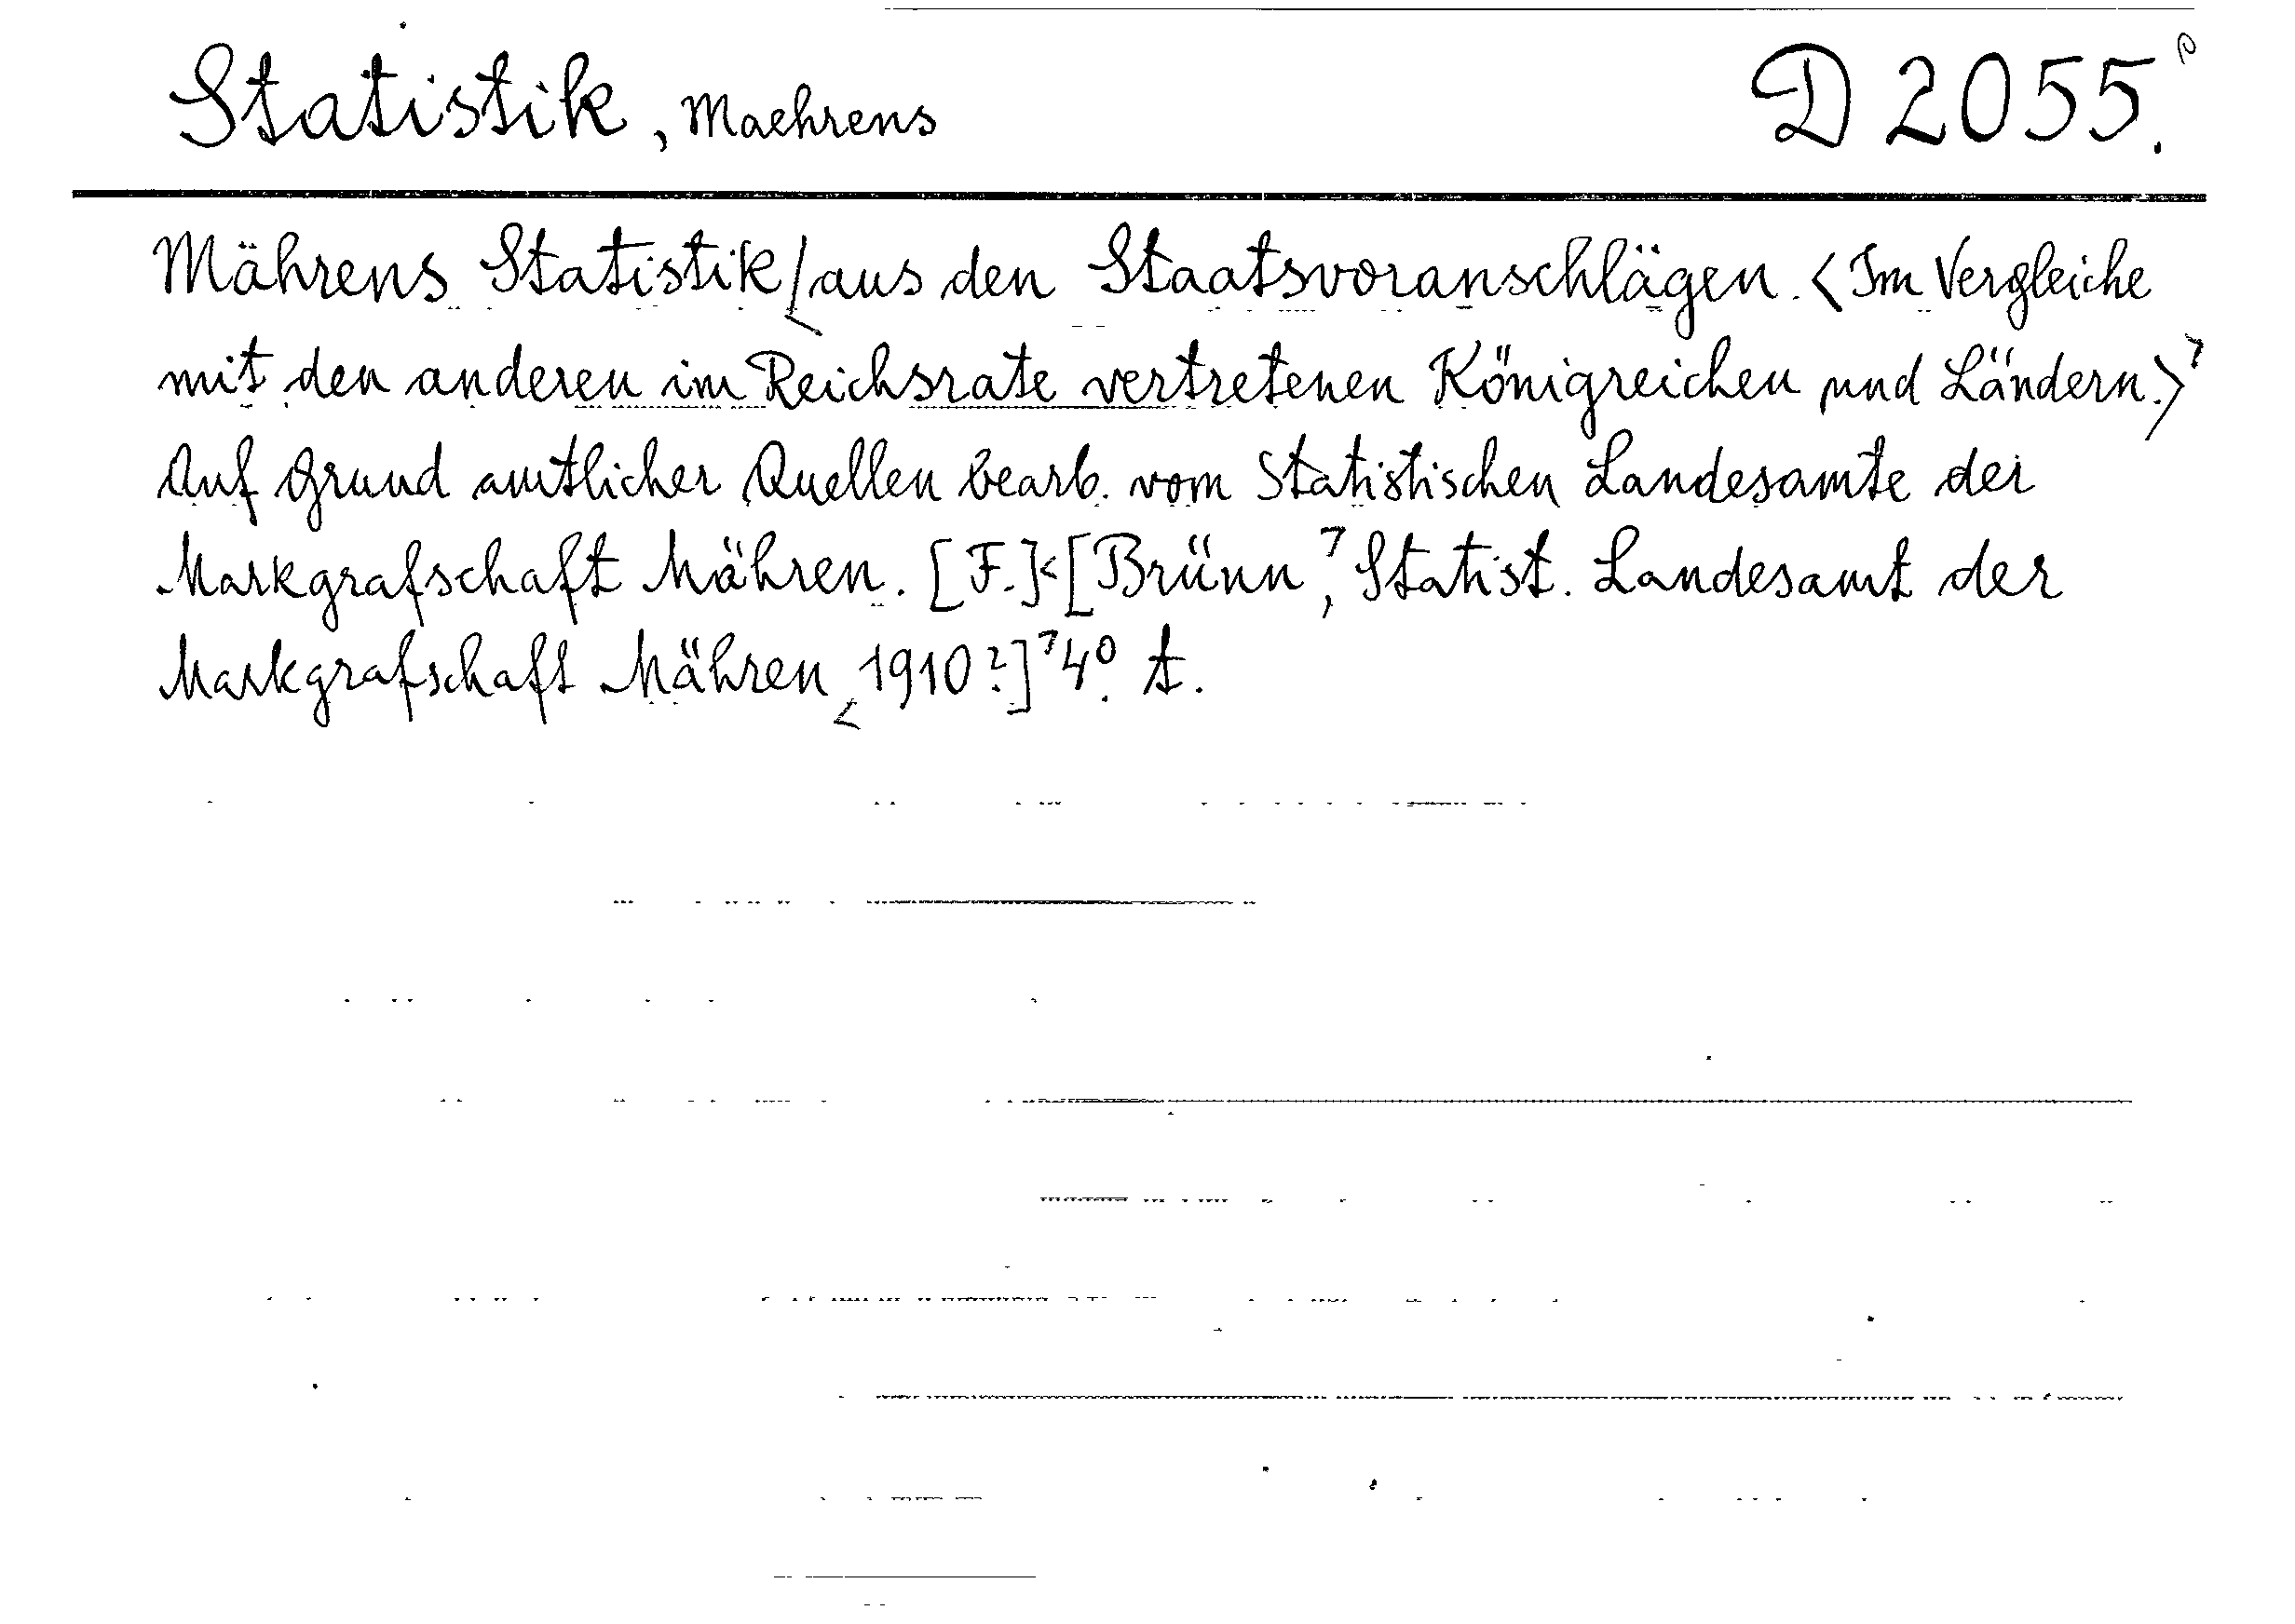 Statistik, Maehrens D 2055.
Mährens Statistik aus den Staatsvoranschlägen. <Im Vergleiche
mit den anderen im Reichsrate vertretenen Königreichen und Ländern.>
Auf Grund amtlicher Quellen bearb. vom Statistischen Landesamte der
Markgrafschaft Mähren. [F.] [Brünn, Statist. Landesamt der
Markgrafschaft Mähren 1910?] 4°. A.